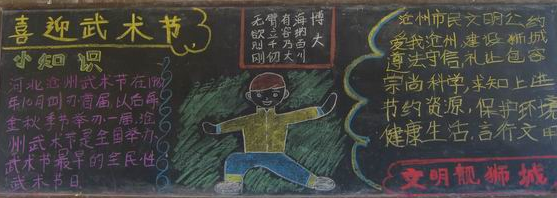 喜迎武术节
小知识
河北沧州武术节在198
年10月创办首届,以后每
金秋季节举办一届,沧
州武术节是全国举办
武术节最早的全民性
武术节日
博大
海纳百川
有容乃大
壁立千仞
无欲则刚
沧州市民文明公约
爱我沧州,建设狮城
遵法守信,礼让包容
崇尚科学,求知上进
节约资源,保护环境
健康生活,言行文明
文明靓狮城